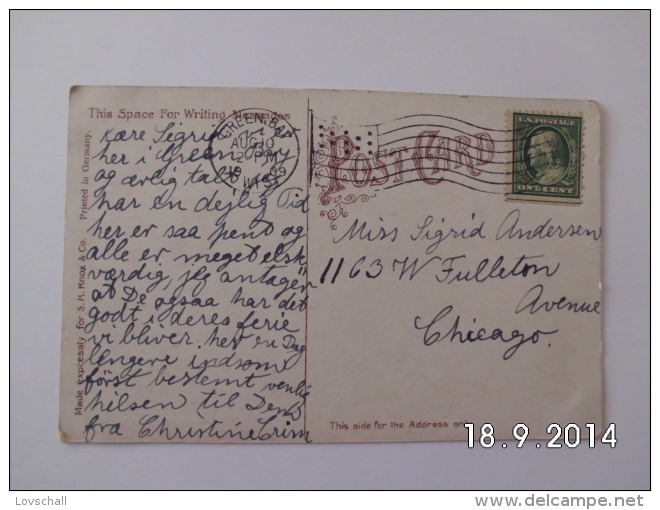 This Space For Writing Messages
Kære Sigrid vi er
her i Green Bay
og ærlig talt vi
har en dejlig Tid
her er saa pent og
alle er meget elsk
værdig, jeg antager
at De ogsaa har det
godt i deres ferie
vi bliver her en Dag
lengere indsom
först bestemt venlig
hilsen til Dem
fra Christine
Made expressly for S. H. Knox & Co. Printed in Germany.
GREEN BAY
AUG 10
PM
WIS.
POST CARD
U.S. POSTAGE
ONE CENT
Miss Sigrid Andersen
1163 W Fulleton
Avenue
Chicago.
This side for the Address
18.9.2014
Lovschall
delcampe.net